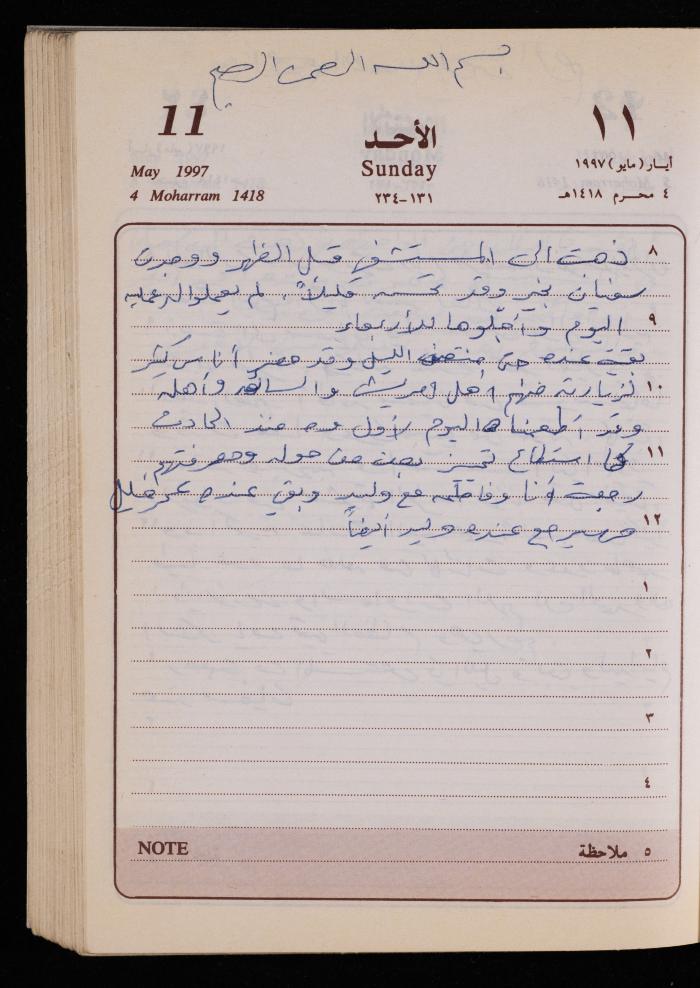 بسم الله الرحمن الرحيم
11 الأحد ١١
May 1997 Sunday أيار (مايو) ١٩٩٧
4 Moharram 1418 ١٣١-٢٣٤ ٤ محرم ١٤١٨هـ
٨ ذهبت الى المستشفى قبل الظهر ووجدت
سفيان بخير وقد تحسن قليلاً. لم يعملوا له عملية
٩ اليوم وأجّلوها للأربعاء
بقيت عنده حتى منتصف الليل وقد حضر أناس كثر
١٠ لزيارته منهم أهل وأهله
وقد أطعمناه اليوم لأول مرة منذ الحادث
١١ كما استطاع تمييز بعض من حوله ومعرفتهم
رجعت أنا وفاطمة مع وليد وبقي عنده
١٢ وسيرجع عنده وليد أيضاً
١
٢
٣
٤
NOTE ٥ ملاحظة